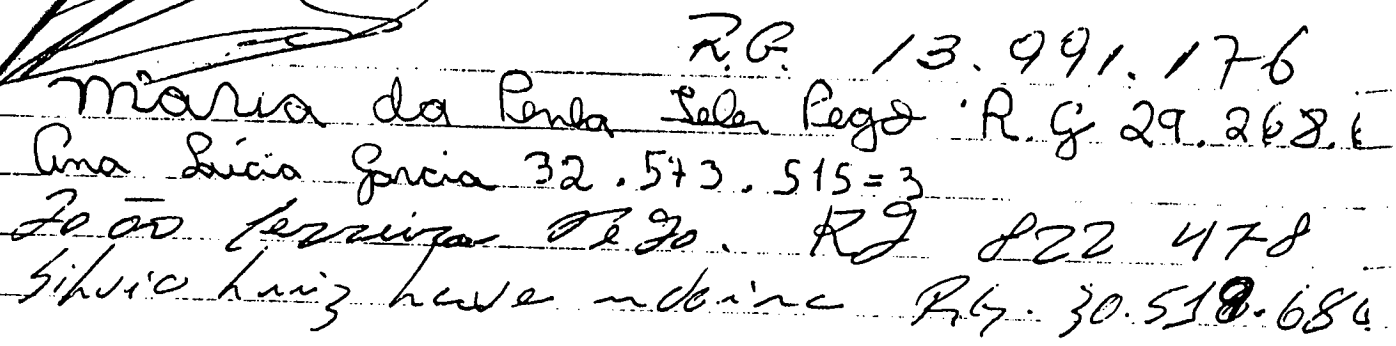 R.G. 13.991.176
Maria da Penha Teles Pego R.G 29.268.6
Ana Lúcia Garcia 32.573.515=3
João Ferreira Pego. RG 822 478
Silvio Luiz RG. 30.518.684